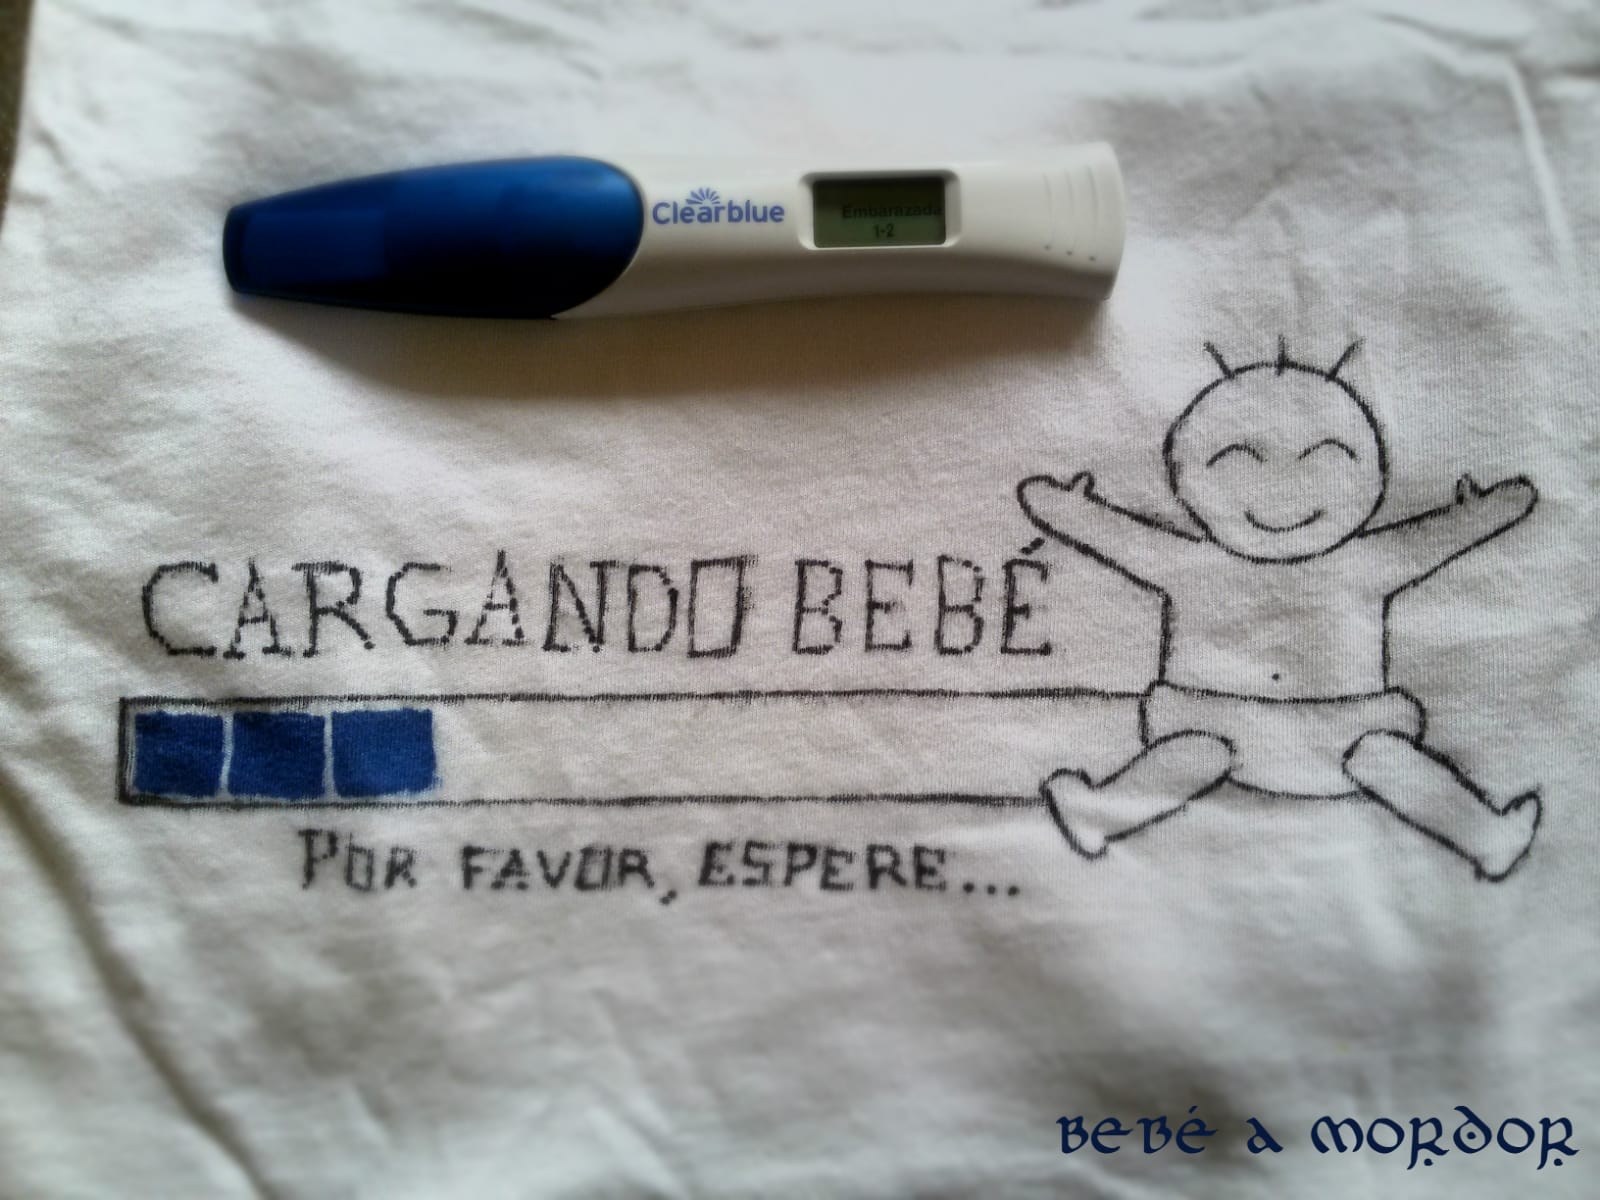 Clearblue
Embarazada
1-2
CARGANDO BEBÉ
POR FAVOR, ESPERE...
BEBÉ A MORDOR